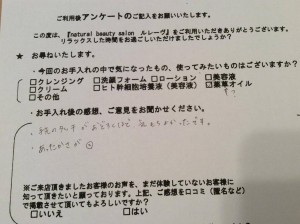 ご利用後アンケートのご記入をお願いいたします。
この度は、『natural beauty salon ルレーヴ』をご利用いただきありがとうございます。
リラックスした時間をお過ごしいただけましたでしょうか?
★ お尋ねいたします。
・今回のお手入れの中で気になったもの、使ってみたいものはございますか?
□クレンジング □洗顔フォーム □ローション □美容液
□クリーム □ヒト幹細胞培養液(美容液) ☑薬草オイル
□その他
・お手入れ後の感想、ご意見をお聞かせください。
気もちよかったです。
あたたかさが ◎
※ご来店頂きましたお客様のお声を、まだ体験していないお客様に
知って頂きたいと願っております。上記、ご感想を口コミ(匿名など)
で掲載させて頂いてもよろしいですか?
□いいえ □はい